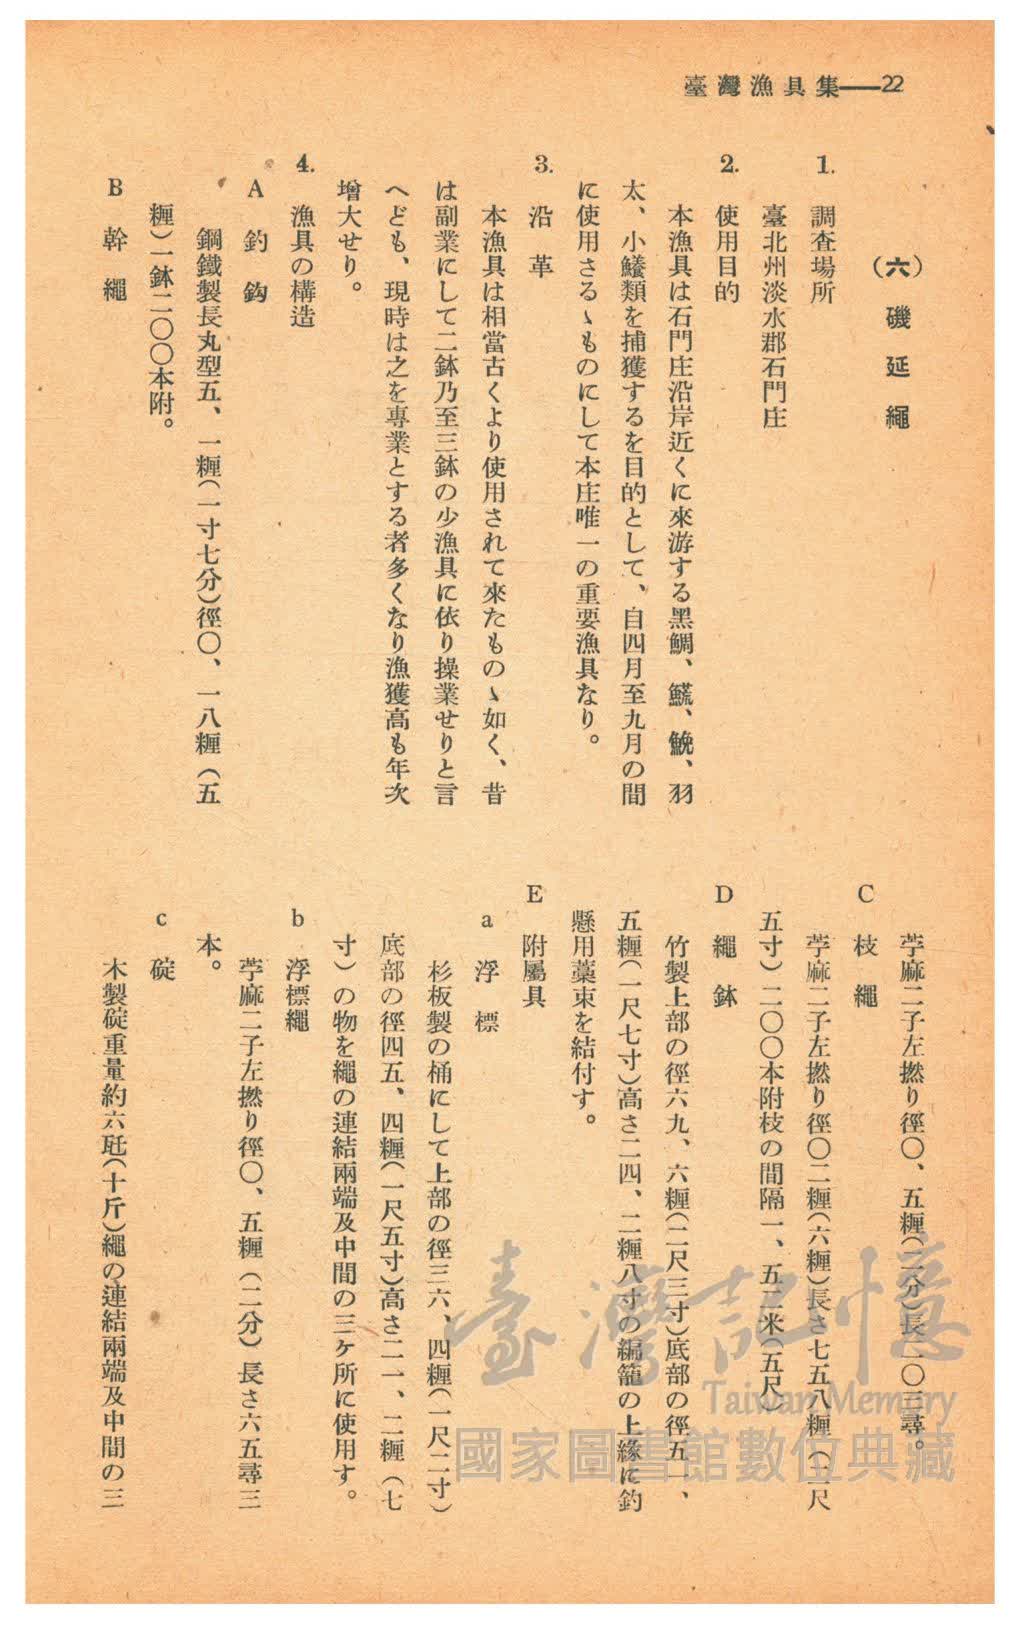 臺灣漁具集——22
（六）磯延繩
1. 調査場所
臺北州淡水郡石門庄
2. 使用目的
本漁具は石門庄沿岸近くに來游する黑鯛、鱸、鮸、羽
太、小鱶類を捕獲するを目的として、自四月至九月の間
に使用さるゝものにして本庄唯一の重要漁具なり。
3. 沿革
本漁具は相當古くより使用されて來たものゝ如く、昔
は副業にして二鉢乃至三鉢の少漁具に依り操業せりと言
へども、現時は之を專業とする者多くなり漁獲高も年次
增大せり。
4. 漁具の構造
A 釣鈎
鋼鐵製長丸型五、一糎（一寸七分）徑〇、一八糎（五
糎）一鉢二〇〇本附。
B 幹繩
苧麻二子左撚り徑〇、五糎（二分）長二〇三尋。
C 枝繩
苧麻二子左撚り徑〇二糎（六糎）長さ七五八糎（二尺
五寸）二〇〇本附枝の間隔一、五二米（五尺）
D 繩鉢
竹製上部の徑六九、六糎（二尺三寸）底部の徑五一、
五糎（一尺七寸）高さ二四、二糎八寸の編籠の上緣に釣
懸用藁束を結付す。
E 附屬具
a 浮標
杉板製の桶にして上部の徑三六、四糎（一尺二寸）
底部の徑四五、四糎（一尺五寸）高さ二一、二糎（七
寸）の物を繩の連結兩端及中間の三ヶ所に使用す。
b 浮標繩
苧麻二子左撚り徑〇、五糎（二分）長さ六五尋三
本。
c 碇
木製碇重量約六瓩（十斤）繩の連結兩端及中間の三
臺灣記憶
Taiwan Memory
國家圖書館數位典藏